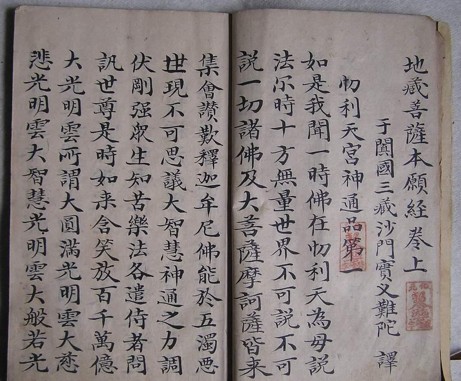 地藏菩薩本願經卷上
于闐國三藏沙門實叉難陀 譯
忉利天宮神通品第一
如是我聞一時佛在忉利天為母說
法尔時十方無量世界不可說不可
說一切諸佛及大菩薩摩訶薩皆來
集會讚歎釋迦牟尼佛能於五濁惡
世現不可思議大智慧神通之力調
伏剛强眾生知苦樂法各遣侍者問
訊世尊是時如来含笑放百千萬億
大光明雲所謂大圓滿光明雲大慈
悲光明雲大智慧光明雲大般若光